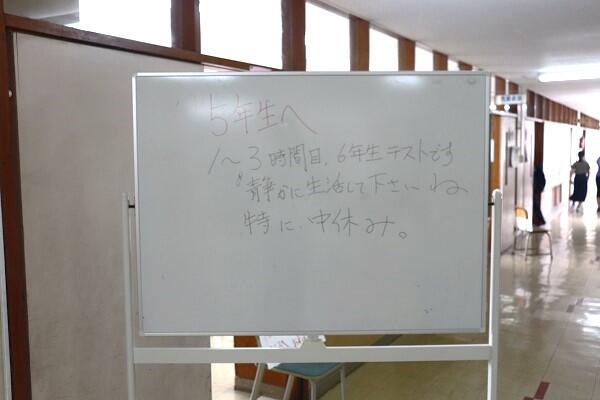 5年生へ
1~3時間目、6年生テストです
静かに生活して下さいね
特に、中休み。